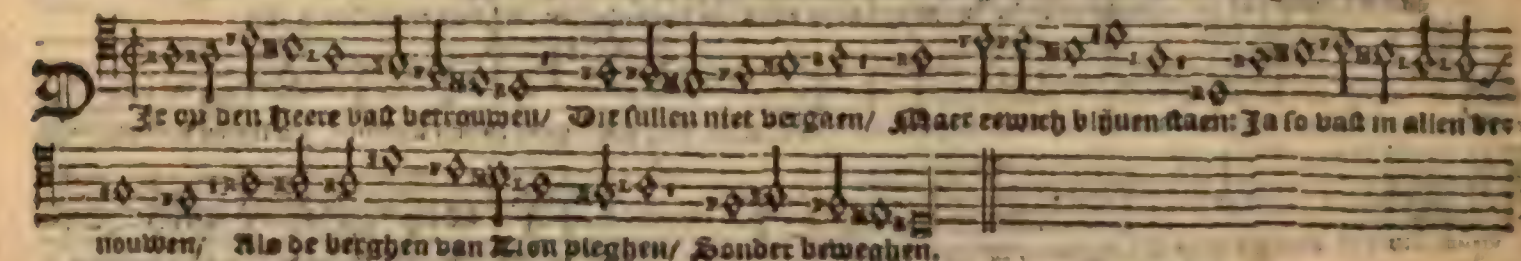 DJe op den Heere vast betrouwen/ Die sullen niet vergaen/ Maer eewich blijuen staen: Ja so vast in allen ver-
nouwen/ Als de berghen van Zion pleghen/ Sonder beweghen.